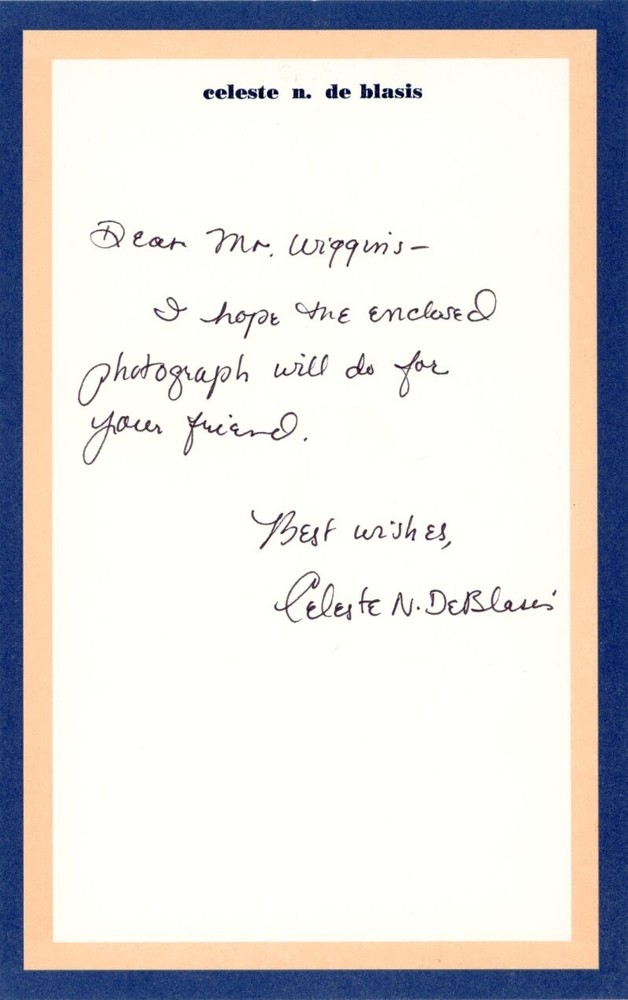 celeste n. de blasis
Dear Mr. Wiggins–
I hope the enclosed
photograph will do for
your friend.
Best wishes,
Celeste N. DeBlasis